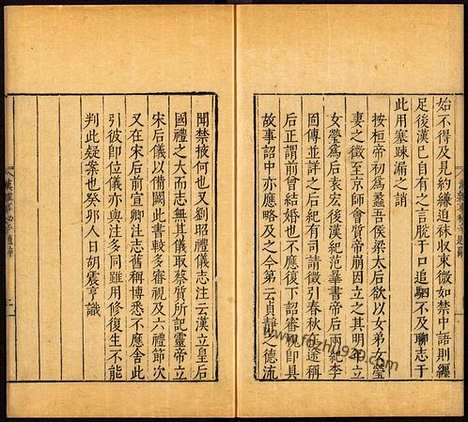 始不得見約縑迫袜収束微如禁中語則纏
足後漢已自有之言脫于口追駟不及聊志于
此用塞踈漏之誚
按桓帝初為蠡吾侯梁太后欲以女弟女瑩
妻之徵至京師會質帝崩因立其明又立
女瑩為后袁宏後漢紀范蔚書帝后兩紀李
固傳並詳之后紀有司請徵引春秋在途稱
后正謂前曾結婚也不應復丁詔審視即具
故事詔中亦應略及之今第云貞靜之德流
聞禁掖何也又劉昭禮儀志注云漢立皇后
國禮之大而志無其儀取蔡質所記靈帝立
宋后儀以備闕此書較多審視及六禮節次
又在宋后前宣卿注志舊稱博悉不應舍此
引彼即位儀亦與注多同雖用修復生不能
判此疑案也癸夘人日胡震亨識